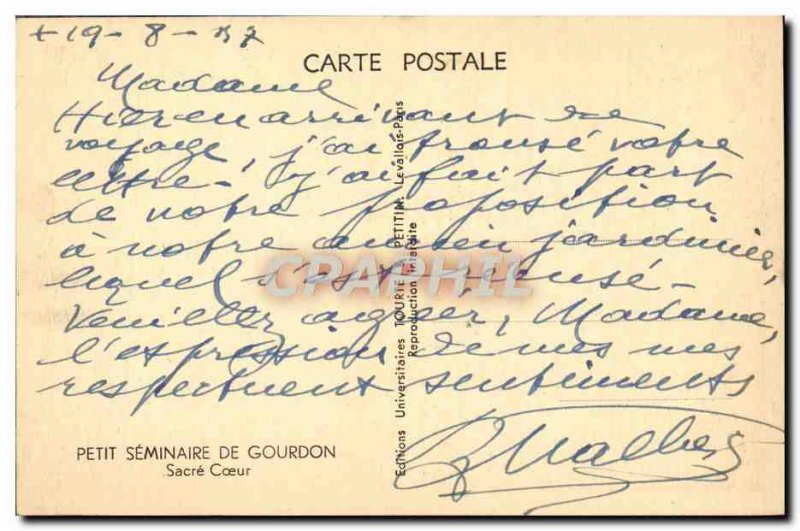 + 19 - 8 - 37
CARTE POSTALE
Madame
Hier en arrivant de
voyage, j'ai trouvé votre
lettre - j'ai fait part
de notre proposition
à notre ancien jardinier,
lequel s'est récusé -
Veuillez agréer, Madame,
l'expression de mes mes
respectueux sentiments
PETIT SÉMINAIRE DE GOURDON
Sacré Cœur
Editions Universitaires TOURTE PETITIN, Levallois-Paris
Reproduction Interdite
CPAPHIL